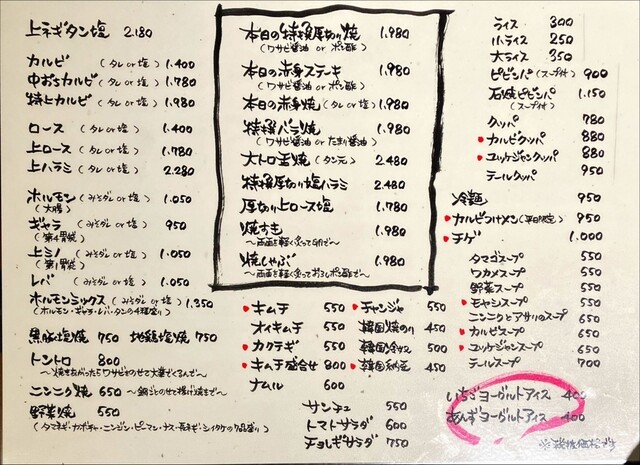 上ネギタン塩 2.180
カルビ (タレ or 塩) 1.400
中おちカルビ (〃) 1.780
特上カルビ (〃) 1.980
ロース (タレ or 塩) 1.400
上ロース (〃) 1.780
上ハラミ (〃) 2.280
ホルモン (みそダレ or 塩) 1.050
(大腸)
ギャラ (みそダレ or 塩) 950
(第4胃袋)
上ミノ (みそダレ or 塩) 1.050
(第1胃袋)
レバ (みそダレ or 塩) 1.050
ホルモンミックス (みそダレ or 塩) 1.350
(ホルモン・ギャラ・レバ・タンの4種盛り)
黒豚塩焼 750 地鶏塩焼 750
トントロ 800
ニンニク焼 650
野菜焼 550
(タマネギ・カボチャ・ニンジン・ピーマン・ナス・長ネギ・シイタケの7品盛り)
本日の特撰厚切り焼 1.980
(ワサビ醤油 or ポン酢)
本日の赤身ステーキ 1.980
(ワサビ醤油 or ポン酢)
本日の赤身焼 (タレ or 塩) 1.980
特撰バラ焼 1.980
(ワサビ醤油 or たまり醤油)
大トロ玉焼 (タン元) 2.480
特撰厚切り塩ハラミ 2.480
厚切り上ロース塩 1.780
焼すき 1.980
〜両面を軽く炙ってGINで〜
焼しゃぶ 1.980
〜両面を軽く炙っておろしポン酢で〜
キムチ 550
オイキムチ 550
カクテギ 550
キムチ盛合せ 800
ナムル 600
チャンジャ 550
韓国焼のり 450
韓国冷奴 500
韓国納豆 450
サンチュ 550
トマトサラダ 600
チョレギサラダ 750
ライス 300
小ライス 250
大ライス 350
ビビンバ (スープ付) 900
石焼ビビンバ 1.150
(スープ付)
クッパ 780
カルビクッパ 880
ユッケジャンクッパ 880
テールクッパ 950
冷麺 950
カルビつけメン (平日限定) 950
チゲ 1.000
タマゴスープ 550
ワカメスープ 550
野菜スープ 550
モヤシスープ 550
ニンニクとアサリのスープ 650
カルビスープ 650
ユッケジャンスープ 650
テールスープ 700
いちごヨーグルトアイス 400
あんずヨーグルトアイス 400
※税抜価格です